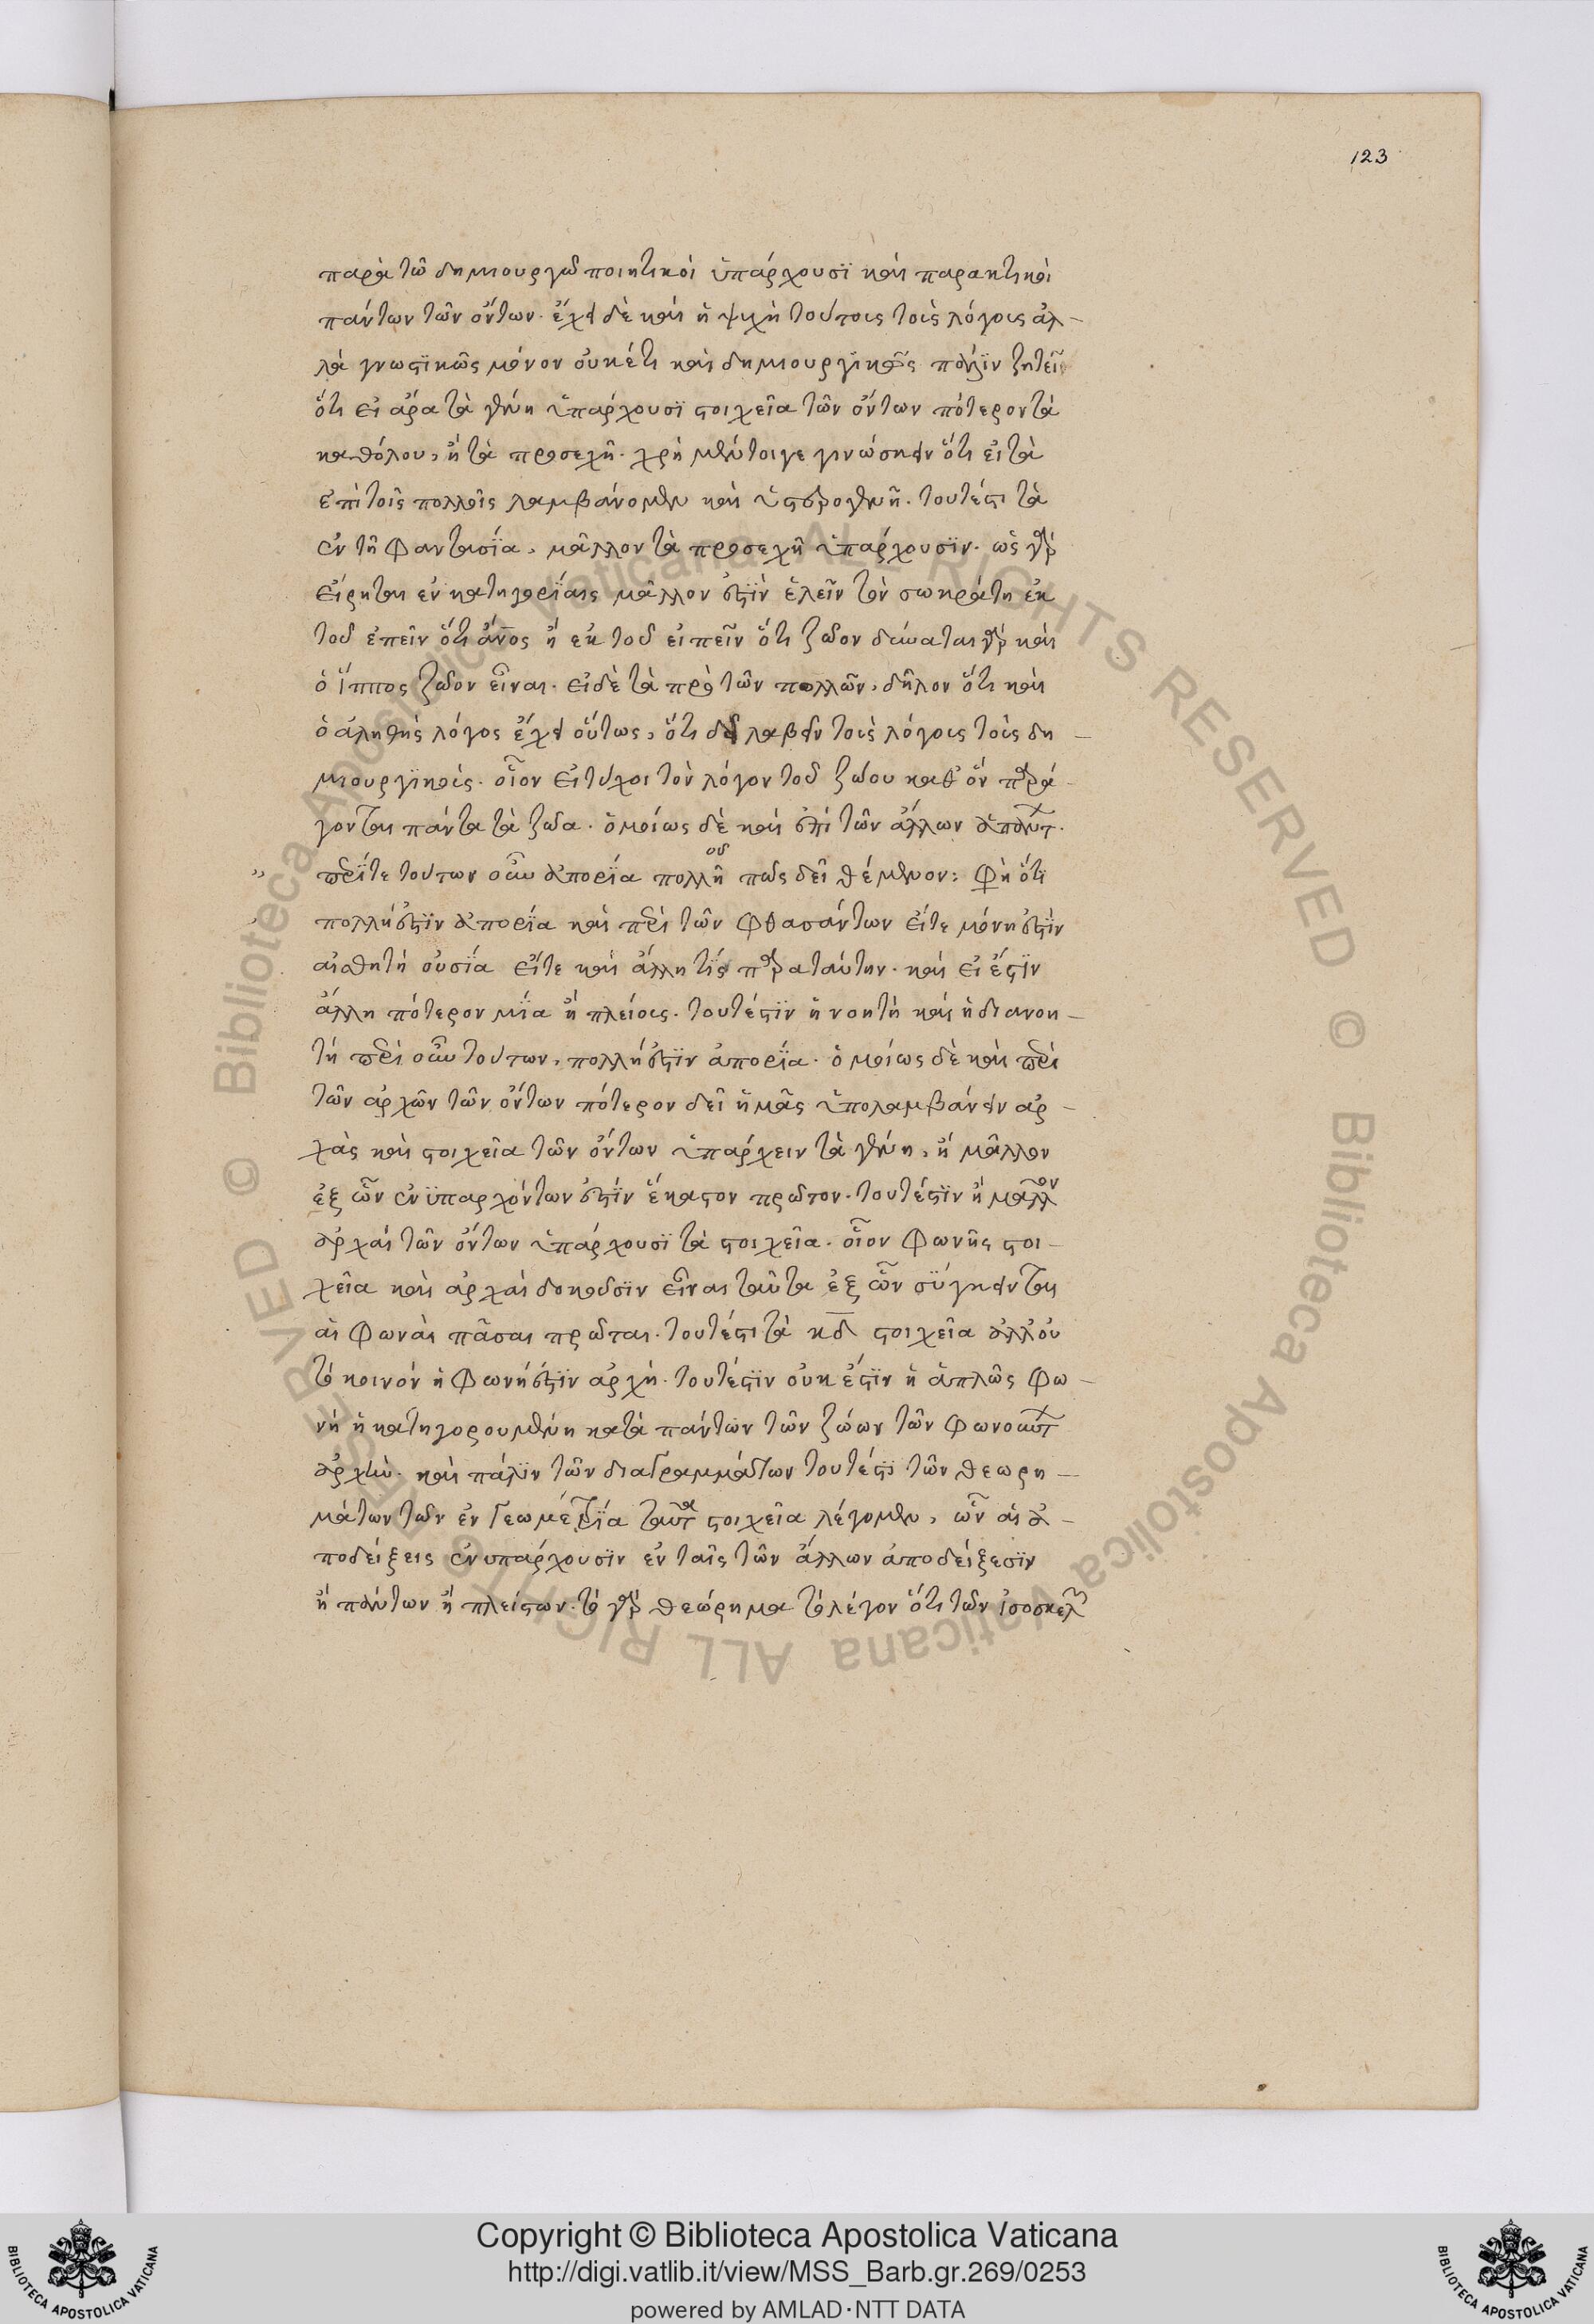 123
παρὰ τῶ δημιουργῶ ποιητικοὶ ὑπάρχουσϊ καὶ παρακτικοὶ
πάντων τῶν ὄντων. ἔχει δὲ καὶ ἡ ψυχὴ τούτοις τοὶς λόγοις ἀλ-
λὰ γνωστϊκῶς μόνον οὐκέτι καὶ δημιουργϊκῶς πάλϊν ζητεῖ
ὅτι εἰ ἄρα τὰ γένη ὑπάρχουσϊ στοιχεῖα τῶν ὄντων πότερον τὰ
καθόλου, ἢ τὰ προσεχῆ. χρὴ μέντοιγε γινώσκειν ὅτι εἰ τὰ
ἐπὶ τοῖς πολλοῖς λαμβάνομεν καὶ ὑστερογενῆ. τουτέστι τὰ
ἐν τῆ φαντασϊα, μᾶλλον τὰ προσεχῆ ὑπάρχουσϊν. ὡς γὰρ
εἴρηται ἐν κατηγορϊαις μᾶλλον ἐστϊν ἑλεῖν τὸν σωκράτη ἐκ
τοῦ ἐπεῖν ὅτι ἄνος ἢ ἐκ τοῦ εἰπεῖν ὅτι ζῶον δύναται γὰρ καὶ
ὁ ἵππος ζῶον εἶναι. εἰ δὲ τὰ πρὸ τῶν πολλῶν, δῆλον ὅτι καὶ
ὁ ἀληθὴς λόγος ἔχει οὕτως, ὅτι δεῖ λαβεῖν τοὶς λόγοις τοὶς δη-
μιουργϊκοὶς. οἷον εἰ τύχοι τὸν λόγον τοῦ ζώου καθ' ὃν παρά-
γονται πάντα τὰ ζῶα. ὁμοίως δὲ καὶ ἐπὶ τῶν ἄλλων ἁπάντ.
περϊ τε τούτων οὖν ἀπορϊα πολλὴ πῶς δεῖ θέμενον: Φὴ ὅτϊ
πολλὴ ἐστϊν ἀπορϊα καὶ περὶ τῶν φθασάντων εἴτε μόνη ἐστϊν
αἰσθητὴ οὐσϊα εἴτε καὶ ἄλλη τϊς παρὰ ταύτην. καὶ εἰ ἔστϊν
ἄλλη πότερον μϊα ἢ πλείοις. τουτέστϊν ἡ νοητὴ καὶ ἡ διανοη-
τὴ περὶ οὖν τούτων, πολλὴ ἐστϊν ἀπορϊα. ὁμοίως δὲ καὶ περὶ
τῶν ἀρχῶν τῶν ὄντων πότερον δεῖ ἡμᾶς ὑπολαμβάνειν ἀρ-
χὰς καὶ στοιχεῖα τῶν ὄντων ὑπάρχειν τὰ γένη, ἢ μᾶλλον
ἐξ ὧν ἐνϋπαρχόντων ἐστϊν ἕκαστον πρῶτον. τουτέστϊν ἢ μᾶλλον
ἀρχαὶ τῶν ὄντων ὑπάρχουσϊ τὰ στοιχεῖα. οἷον φωνῆς στοι-
χεῖα καὶ ἀρχαὶ δοκοῦσϊν εἶναι ταῦτα ἐξ ὧν σύγκεινται
αἱ φωναὶ πᾶσαι πρῶται. τουτέστι τὰ κδ στοιχεῖα ἀλλ' οὐ
τὸ κοινὸν ἡ φωνὴ ἐστϊν ἀρχὴ. τουτέστϊν οὐκ ἔστϊν ἡ ἁπλῶς φω-
νὴ ἡ κατηγορουμένη κατὰ πάντων τῶν ζώων τῶν φωνούντ
ἀρχὴν. καὶ πάλϊν τῶν διαγραμμάτων τουτέστϊ τῶν θεωρη-
μάτων τῶν ἐν γεωμετρϊα ταῦτα στοιχεῖα λέγομεν, ὧν αἱ ἀ-
ποδείξεις ἐνυπάρχουσϊν ἐν ταῖς τῶν ἄλλων ἀποδείξεσϊν
ἢ πάντων ἢ πλείστων. τὸ γὰρ θεώρημα τὸ λέγον ὅτι τῶν ἰσοσκελ
Copyright © Biblioteca Apostolica Vaticana
http://digi.vatlib.it/view/MSS_Barb.gr.269/0253
powered by AMLAD·NTT DATA